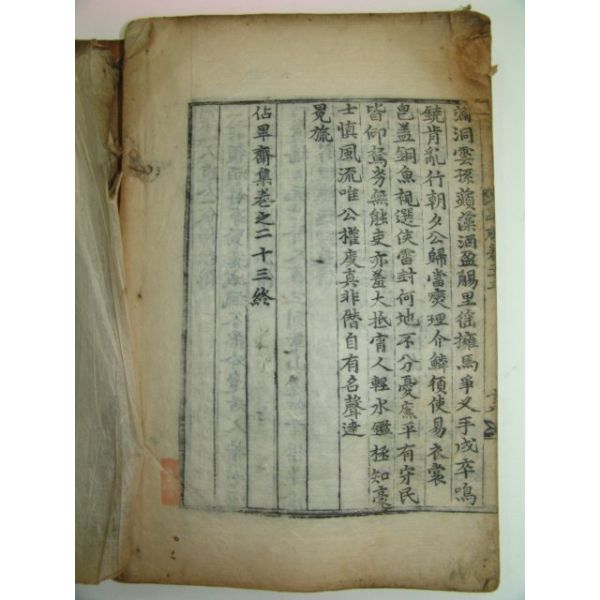 洞雲孫蘋藻酒盈觴里徭擁馬爭叉手戍卒鳴
鐃肯亂行朝夕公歸當爕理介鱗須使易衣裳
皂盖銅魚視選侯雷封何地不分憂庶平有守民
皆仰駑劣無能吏亦羞大抵宵人輕水鑑極知高
士愼風流唯公權度眞非僭自有名聲達
冕旒
佔畢齋集卷之二十三終